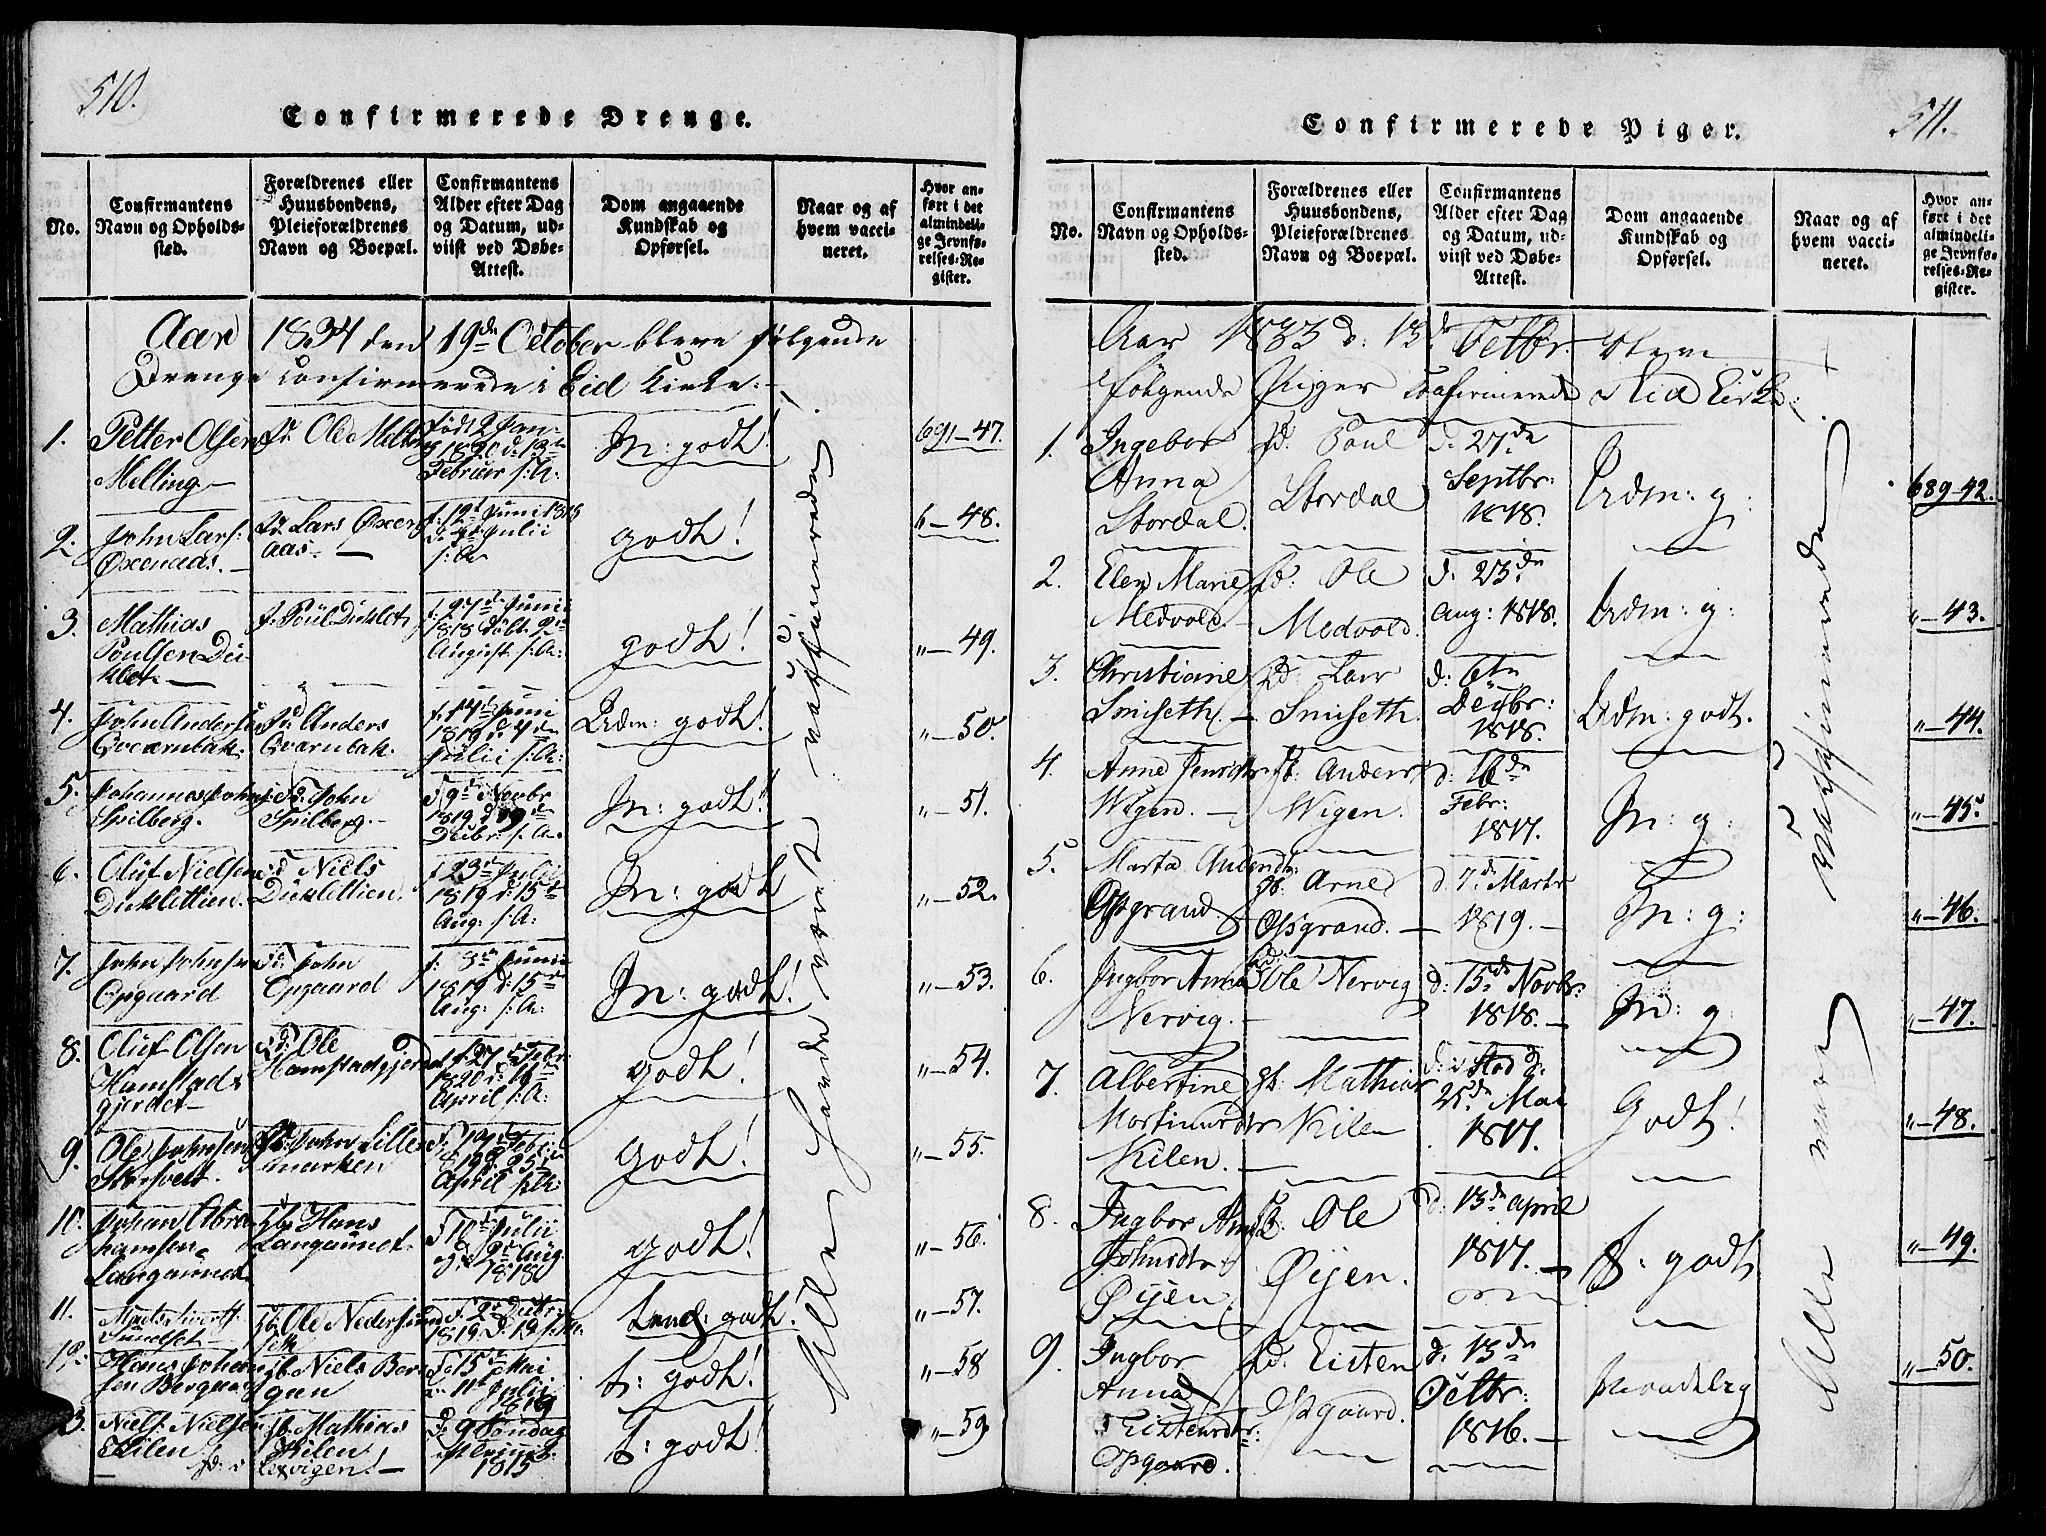 510.
Confirmerede Drenge.
No.
Confirmantens
Navn og Opholds-
sted.
Forældrenes eller
Huusbondens,
Pleieforældrenes
Navn og Boepæl.
Confirmantens
Alder efter Dag
og Datum, ud-
viist ved Døbe-
Attest.
Dom angaaende
Kundskab og
Opførsel.
Naar og af
hvem vacci-
neret.
Hvor an-
ført i det
almindeli-
ge Jevnfø-
relses-Re-
gister.
Aar 1834 den 19de October bleve følgende
Drenge confirmerede i Eid Kirke:
1.
Petter Olsen
Melting
Ole Melting
født 2 Jan:
1820 d: 13de
Februar s: A:
M: godt!
691-47.
2.
John Lars:
Oxenaas.
Lars Oxen
aas.
f: 12t Juni 1818
Julii
s: A
godt!
6-48.
3.
Mathias
Poulsen Du-
klet
Poul Duklet
f. 27de Junii
1818 døbt 2den
August s: A:
godt!
"-49.
4.
John Andersen
Qværnbak
Anders
Qvarnbak.
f: 14de Juni
1819 d: 4de
Julii s: A:
Udm: godt!
"-50.
5.
Johannes Johns:
Spilberg.
John
Spilberg.
f 9de Novbr
1819 d 19de
Decbr: s: A.
M: godt!
"-51.
6.
Oluf Nielsen
Duklettien.
Niels
Duklettien.
f 23de Julii
1819 d: 15de
Aug: s: A:
M: godt
"-52.
7.
John Johnsen
Opgaard
John
Opgaard
f: 3de Junii
1819 d: 15de
Aug: s: A:
M: godt!
"-53.
8.
Oluf Olsen
Hamstad
gjerdet
Ole
Hamstadgjerdet
f. 27de Febr:
1820 d:
April s: A:
godt!
"-54.
9.
Ole Johnsen
John Lille
marken
April s: A:
godt!
"-55.
10.
Johan Abra
hamsen
Langaunet
Hans
Langaunet
f 10de Julii
Aug:
1818
godt!
"-56.
11.
Sundset
Ole Nedersund
seth
1819. d: 19 s: A:
tem: godt!
"-57.
12.
Hans Johan
sen Bergan
Niels Ber
gan
f: 15de Mai
d: 11t Julii
1819
t: godt!
"-58
13.
Niels Nielsen
Kilen
Mathias
Kilen
Søndag
1815
t: godt!
"-59
Alle have været vaksinerede!
511.
Confirmerede Piger.
No.
Confirmantens
Navn og Opholds-
sted.
Forældrenes eller
Huusbondens,
Pleieforældrenes
Navn og Boepæl.
Confirmantens
Alder efter Dag
og Datum, ud-
viist ved Døbe-
Attest.
Dom angaaende
Kundskab og
Opførsel.
Naar og af
hvem vacci-
neret.
Hvor an-
ført i det
almindeli-
ge Jevnfø-
relses-Re-
gister.
Aar 1833 d: 13de Octbr. bleve
følgende Piger confirmerede i Eid Kirke:
1.
Ingebor
Anna
Stordal.
fd: Poul
Stordal
d: 27de
Septbr:
1818.
Udm: g:
689-42.
2.
Elen Marie
Medvold.
fd: Ole
Medvold.
d: 23de
Aug: 1818.
Udm: g:
"-43.
3.
Christiane
Smiseth.
fd: Lars
Smiseth.
d: 6te
Decbr:
1818.
Udm: godt.
"-44.
4.
Anne
Wigen.
Anders
Wigen.
d: 16de
Febr:
1817.
M: g:
"-45.
5.
Marta
Opgrand
Arne
Opgrand.
d. 7de Marts
1819.
M: g:
"-46.
6.
Ingbor Anna
Nervig.
Ole Nervig
d: 15de Novbr:
1818.
M: g:
"-47.
7.
Albertine
Mortinusdtr
Kilen.
Mathias
Kilen
d: i Stod d.
25de Mai
1817.
Godt!
"-48.
8.
Ingbor Anna
Johnsdtr
Øijen.
Ole
Øijen.
d: 13de April
1817.
t: godt
"-49.
9.
Ingbor
Anna
Eistensdtr:
Opgaard.
fd: Eisten
Opgaard.
d: 13de
Octbr:
1816.
"-50.
Alle vare vaksinerede!